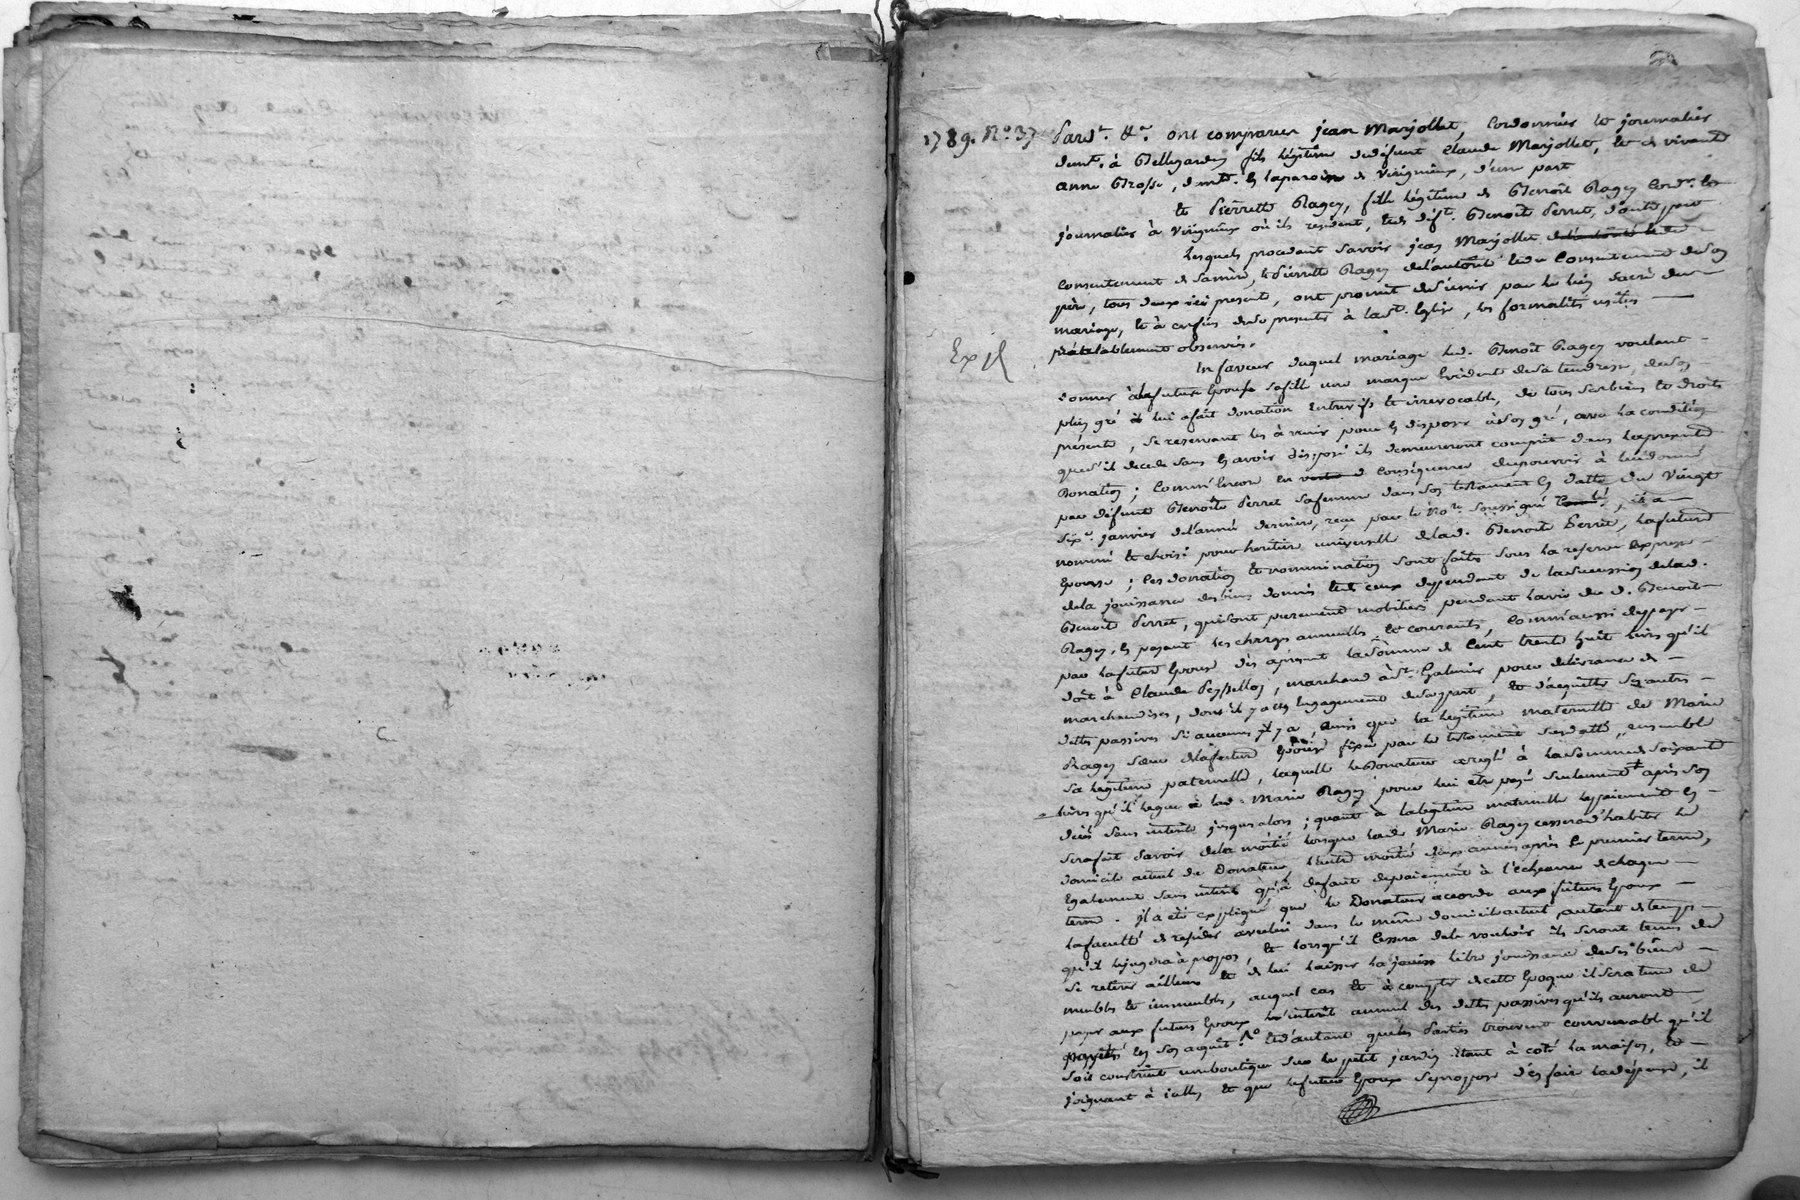 1789. N.o 37
Pard.t &.a ont comparu jean Marjollet, Cordonnier et journalier
demt. à Bellegarde, fils légitime dudéfunt Claude Marjollet, et de vivante
anne Grosse, demte. en laparoisse de Virignieux, d'une part
Et Pierrette Ragey, fille légitime de Benoît Ragey Cordr. et
journalier à Virignieux où ils resident, et de déft. Benoîte Perret, d'autre part
Lesquels procedant savoir jean Marjollet
Consentement de samère, et Pierrette Ragey del'autorité et du Consentement deson
père, tous deux ici present, ont promit des'unir par le lien sacré du
mariage, et à cesfins dese presenter à laste. Eglise, les formalités usitées
préalablement observées.
Exp.
En faveur duquel mariage led. Benoît Ragey voulant
donner àlafuture Epouse safille une marque Evidente desa tendresse, deson
plein gré il lui afait donation Entrevifs et irrevocable, de tous ses biens et droits
présents, se reservant les àvenir pour En disposer àson gré, avec la condition
ques'il decede sans En avoir disposé ils demeureront comprit dans lapresente
Donation; Comm'Encore en consequence dupouvoir à luidonné
par défunte Benoîte Perret safemme dans son testament En datte du Vingt
sixe. janvier del'année derniere, reçu par le No.re soussigné, il a
nommé et choisi pour heritiere universelle delad. Benoîte Perret, lafuture
Epouse; les donation et nommination sont faites sous la reserve expresse
dela jouissance desbiens donnés et de ceux dependant de lasuccession delad.
Benoîte Perret, quisont purement mobiliers pendant lavie dud. Benoît
Ragey, En payant les charges annuelles et courantes, Comm'aussi depayer
par lafuture Epouse dès àpresent lasomme de Cent trente huit livres qu'il
doit à Claude Peysselon, marchand à St. Galmier pour delivrance de
marchandises, dont il y a eu Engagement desapart, et d'acquitter ses autres
dettes passives si aucunes il y a, Ainsi que la legitime maternelle de Marie
Ragey sœur delafuture Epouse fixée par le testament susdatté, ensemble
sa legitime paternelle, laquelle ledonateur aregl'é à lasomme de soixante
livres qu'il legue à lad. Marie Ragey pour lui etre payé seulement après son
décès sans interêt jusqu'alors; quant à lalegitime maternelle lepaiement En
serafait savoir dela moitié lorsque lade. Marie Ragey cesserad'habiter le
domicile actuel du Donateur, l'autre moitié deux années après le premier terme,
Egalement sans interêt qu'à defaut depaiement à l'echeance de chaque
terme. il a été expliqué que le Donateur accorde aux futurs Epoux
lafaculté de resider aveclui dans le même domicile actuel, autant de temps
qu'il lejugera à propos, et lorsqu'il Cessera dele vouloir ils seront tenus de
se retirer ailleurs et de lui laisser la libre jouissance deses biens
meubles et immeubles, auquel cas et à compter decette Epoque il sera tenu de
payer aux futurs Epoux l'interêt annuel des dettes passives qu'ils auront
payées En son acquit. Et d'autant queles Parties trouvent convenable qu'il
soit construit uneboutique sur le petit jardin Etant à coté la maison, et
joignant à icelle, et que lefutur Epoux sepropose d'en faire ladépense, il